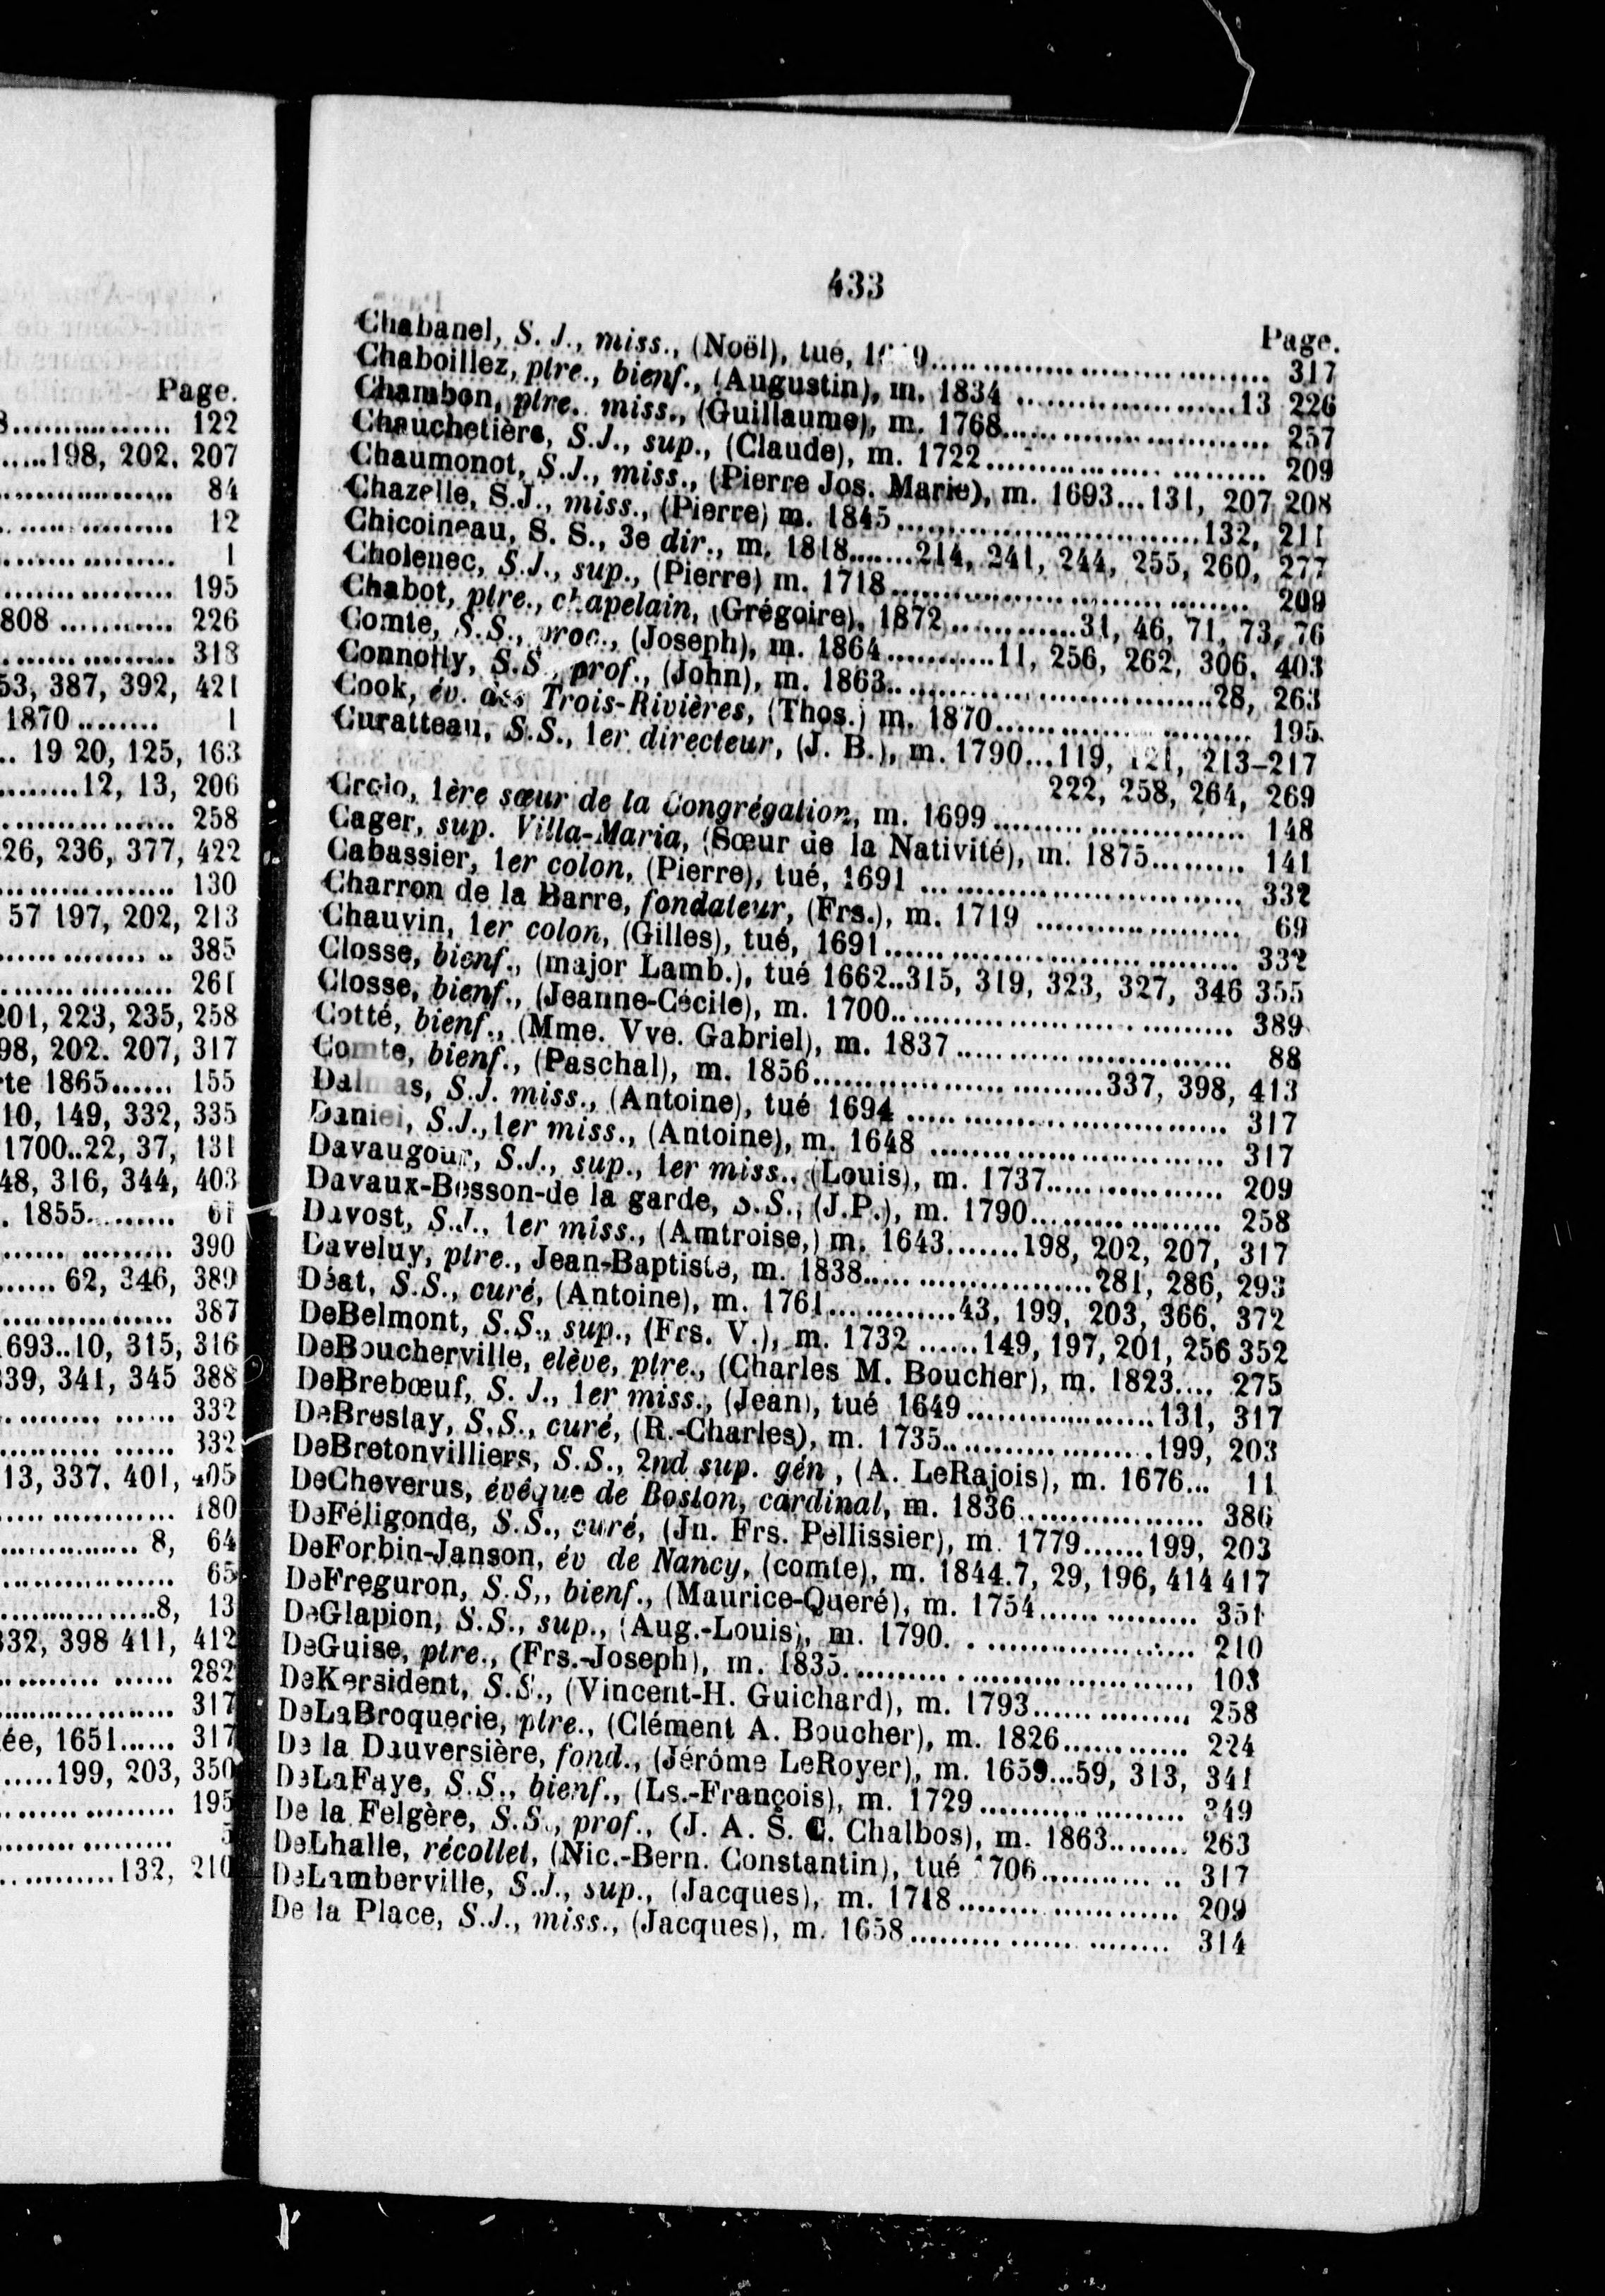 Page.
8................ 122
......198, 202. 207
................. 84
................. 12
................. 1
................. 195
808 ............ 226
................. 318
53, 387, 392, 421
1870 ......... 1
.. 19 20, 125, 163
.........12, 13, 206
................. 258
26, 236, 377, 422
................. 130
57 197, 202, 213
................. 385
................. 261
201, 223, 235, 258
98, 202. 207, 317
rte 1865...... 155
10, 149, 332, 335
1700..22, 37, 131
48, 316, 344, 403
. 1855.......... 61
................. 390
...... 62, 346, 389
................. 387
1693..10, 315, 316
339, 341, 345 388
................. 332
................. 332
13, 337. 401, 405
................. 180
................ 8, 64
................. 65
................8, 13
332, 398 411, 412
................. 282
................. 317
ée, 1651...... 317
......199, 203, 350
................. 195
................. 5
............132, 210
433
Page.
Chabanel, S. J., miss., (Noël), tué, ................................ 317
Chaboillez, ptre., bienf., (Augustin), m. 1834 ......................13 226
Chambon, ptre. miss., (Guillaume), m. 1768............................ 257
Chauchetière, S.J., sup., (Claude), m. 1722............................ 209
Chaumonot, S.J., miss., (Pierre Jos. Marie), m. 1693...131, 207, 208
Chazelle, S.J., miss., (Pierre) m. 1845................................132, 211
Chicoineau, S. S., 3e dir., m. 1818.......214, 241, 244, 255, 260, 277
Cholenec, S.J., sup., (Pierre) m. 1718................................. 209
Chabot, ptre., chapelain, (Grégoire), 1872.............31, 46, 71, 73, 76
Comte, S.S., proc., (Joseph), m. 1864...........11, 256, 262, 306, 403
Connolly, S.S., prof., (John), m. 1863................................28, 263
Cook, év. des Trois-Rivières, (Thos.) m. 1870........................ 195
Curatteau, S.S., 1er directeur, (J. B.), m. 1790...119, 121, 213-217
222, 258, 264, 269
Crolo, 1ère sœur de la Congrégation, m. 1699........................ 148
Cager, sup. Villa-Maria, (Sœur de la Nativité), m. 1875.......... 141
Cabassier, 1er colon, (Pierre), tué, 1691 ............................... 332
Charron de la Barre, fondateur, (Frs.), m. 1719 ..................... 69
Chauvin, 1er colon, (Gilles), tué, 1691................................. 332
Closse, bienf., (major Lamb.), tué 1662..315, 319, 323, 327, 346 355
Closse, bienf., (Jeanne-Cécile), m. 1700................................ 389
Cotté, bienf., (Mme. Vve. Gabriel), m. 1837........................... 88
Comte, bienf., (Paschal), m. 1856............................337, 398, 413
Dalmas, S.J. miss., (Antoine), tué 1694 ............................... 317
Daniel, S.J., 1er miss., (Antoine), m. 1648 ............................ 317
Davaugour, S.J., sup., 1er miss., (Louis), m. 1737................... 209
Davaux-Besson-de la garde, S.S., (J.P.), m. 1790.................... 258
Davost, S.J., 1er miss., (Amtroise,) m. 1643.......198, 202, 207, 317
Daveluy, ptre., Jean-Baptiste, m. 1838......................281, 286, 293
Déat, S.S., curé, (Antoine), m. 1761.............43, 199, 203, 366, 372
DeBelmont, S.S., sup., (Frs. V.), m. 1732 ......149, 197, 201, 256 352
DeBoucherville, elève, ptre., (Charles M. Boucher), m. 1823.... 275
DeBrebœuf, S. J., 1er miss., (Jean), tué 1649...................131, 317
DeBreslay, S.S., curé, (R.-Charles), m. 1735......................199, 203
DeBretonvilliers, S.S., 2nd sup. gén , (A. LeRajois), m. 1676... 11
DeCheverus, évêque de Boston, cardinal, m. 1836................... 386
DeFéligonde, S.S., curé, (Jn. Frs. Pellissier), m. 1779......199, 203
DeForbin-Janson, év de Nancy, (comte), m. 1844.7, 29, 196, 414 417
DeFreguron, S.S., bienf., (Maurice-Queré), m. 1754................ 351
DeGlapion, S.S., sup., (Aug.-Louis), m. 1790......................... 210
DeGuise, ptre., (Frs.-Joseph), m. 1835................................. 103
DeKersident, S.S., (Vincent-H. Guichard), m. 1793................ 258
DeLaBroquerie, ptre., (Clément A. Boucher), m. 1826............. 224
De la Dauversière, fond., (Jérôme LeRoyer), m. 1659...59, 313, 341
DeLaFaye, S.S., bienf., (Ls.-François), m. 1729..................... 349
De la Felgère, S.S., prof., (J. A. S. C. Chalbos), m. 1863........ 263
DeLhalle, récollet, (Nic.-Bern. Constantin), tué 1706.............. 317
DeLamberville, S.J., sup., (Jacques), m. 1718........................ 209
De la Place, S.J., miss., (Jacques), m. 1658........................... 314